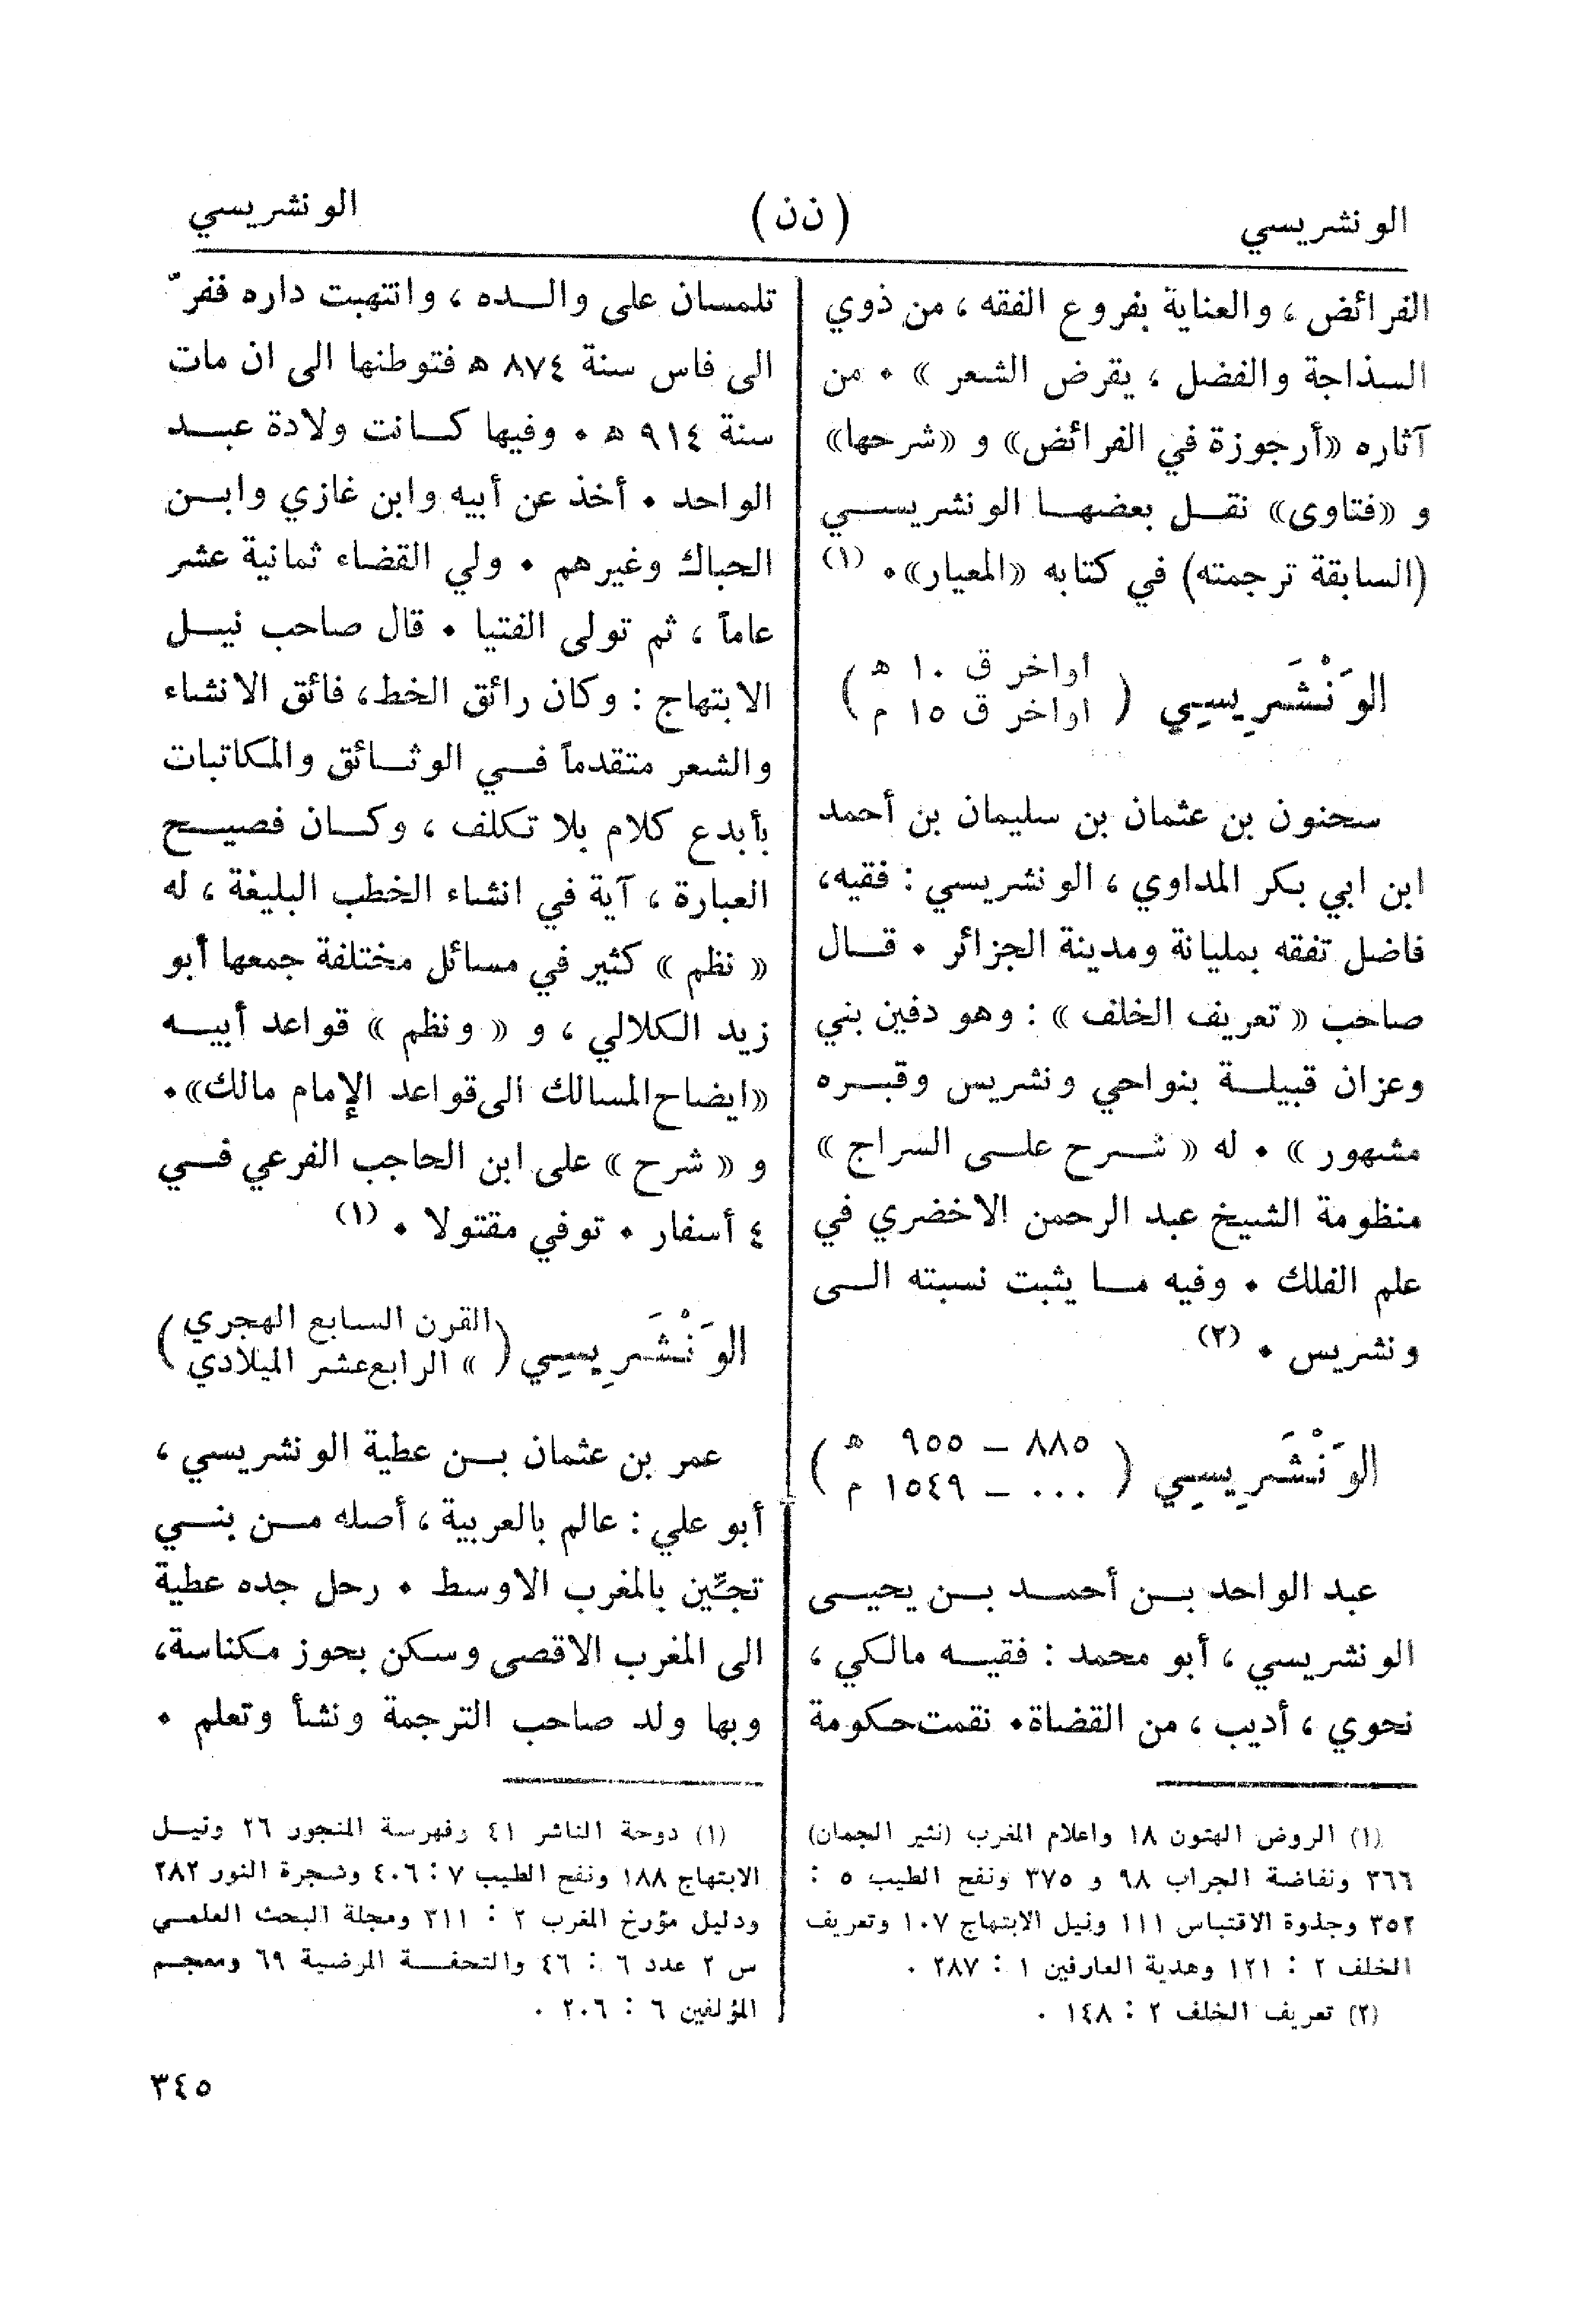 الونشريسي
(ن ن)
الونشريسي
الفرائض، والعناية بفروع الفقه، من ذوي
السذاجة والفضل، يقرض الشعر». من
آثاره «أرجوزة في الفرائض» و «شرحها»
و «فتاوى» نقل بعضها الونشريسي
(السابقة ترجمته) في كتابه «المعيار». (١)
الوَنْشَرِيسِي ( اواخر ق ١٠ ه
اواخر ق ١٥ م )
سحنون بن عثمان بن سليمان بن أحمد
ابن ابي بكر المداوي، الونشريسي : فقيه،
فاضل تفقه بمليانة ومدينة الجزائر. قال
صاحب « تعريف الخلف » : وهو دفين بني
وعزان قبيلة بنواحي ونشريس وقبره
مشهور ». له « شرح على السراج »
منظومة الشيخ عبد الرحمن الاخضري في
علم الفلك. وفيه ما يثبت نسبته الى
ونشريس. (٢)
الوَنْشَرِيسِي ( ٨٨٥ – ٩٥٥ ه
٠٠٠ – ١٥٤٩ م )
عبد الواحد بن أحمد بن يحيى
الونشريسي، أبو محمد : فقيه مالكي،
نحوي، أديب، من القضاة. نقمت حكومة
(١) الروض الهتون ١٨ واعلام المغرب (نثير الجمان)
٣٦٦ ونفاضة الجراب ٩٨ و ٣٧٥ ونفح الطيب ٥ :
٣٥٢ وجذوة الاقتباس ١١١ ونيل الابتهاج ١٠٧ وتعريف
الخلف ٢ : ١٢١ وهدية العارفين ١ : ٢٨٧ .
(٢) تعريف الخلف ٢ : ١٤٨ .
تلمسان على والده، وانتهبت داره ففرّ
الى فاس سنة ٨٧٤ ه فتوطنها الى ان مات
سنة ٩١٤ ه. وفيها كانت ولادة عبد
الواحد. أخذ عن أبيه وابن غازي وابن
الحباك وغيرهم. ولي القضاء ثمانية عشر
عاماً، ثم تولى الفتيا. قال صاحب نيل
الابتهاج : وكان رائق الخط، فائق الانشاء
والشعر متقدماً في الوثائق والمكاتبات
بأبدع كلام بلا تكلف، وكان فصيح
العبارة، آية في انشاء الخطب البليغة، له
« نظم » كثير في مسائل مختلفة جمعها أبو
زيد الكلالي، و « ونظم » قواعد أبيه
«ايضاح المسالك الى قواعد الإمام مالك».
و « شرح » على ابن الحاجب الفرعي في
٤ أسفار. توفي مقتولا. (١)
الوَنْشَرِيسِي ( القرن السابع الهجري
» الرابع عشر الميلادي )
عمر بن عثمان بن عطية الونشريسي،
أبو علي : عالم بالعربية، أصله من بني
تجِّين بالمغرب الاوسط. رحل جده عطية
الى المغرب الاقصى وسكن بحوز مكناسة،
وبها ولد صاحب الترجمة ونشأ وتعلم.
(١) دوحة الناشر ٤١ وفهرسة المنجور ٢٦ ونيل
الابتهاج ١٨٨ ونفح الطيب ٧ : ٤٠٦ وشجرة النور ٢٨٢
ودليل مؤرخ المغرب ٢ : ٣١١ ومجلة البحث العلمي
س ٢ عدد ٦ : ٤٦ والتحفة المرضية ٦٩ ومعجم
المؤلفين ٦ : ٢٠٦ .
٣٤٥